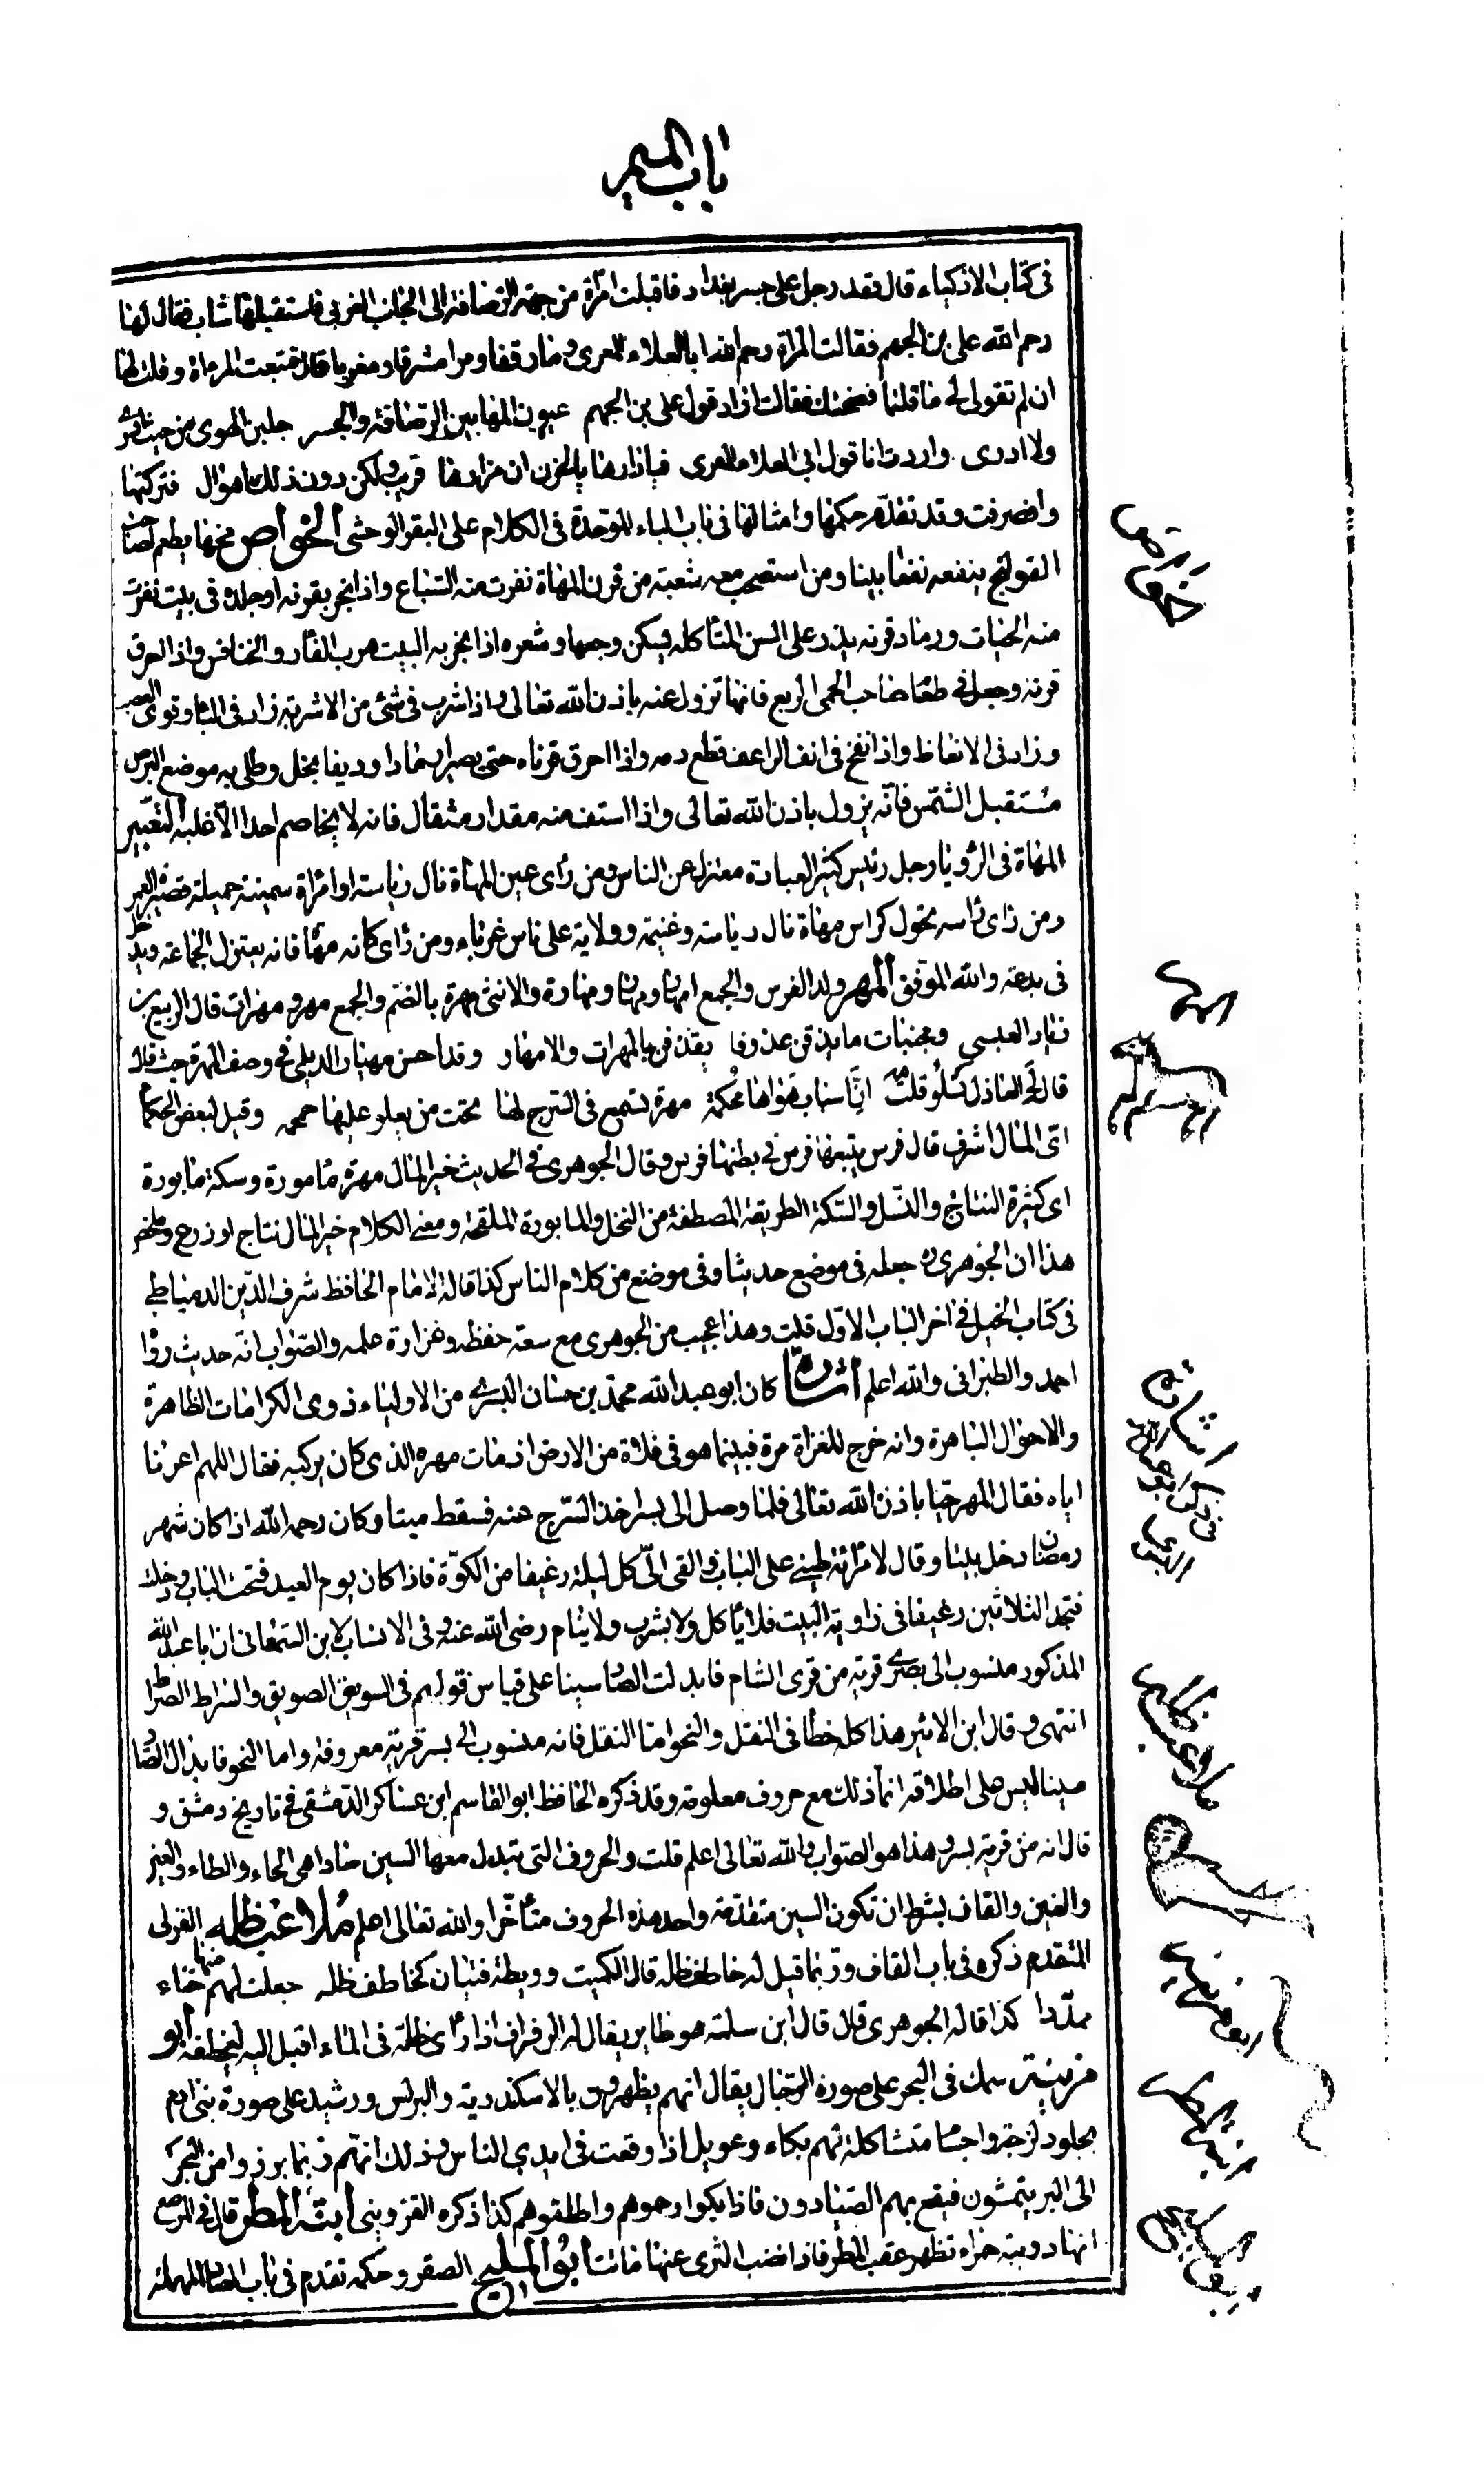 باب الميم
فى كتاب الاذكياء قال قعد رجل على جسر بغداد فاقبلت امرأة من جهة الرصافة الى الجانب الغربى فاستقبلها شاب فقال لها
رحم الله على بن الجهم فقالت المرأة رحم الله ابا العلاء المعرى وما وقفا ومرا مشرقا ومغربا قال فتبعت المرءاة وقلت لها
ان لم تقولى لى ما قلتما فضحتك فقالت اراد قول على بن الجهم عيون المها بين الرصافة والجسر جلبن الهوى من حيث ادرى
ولا ادرى واردت انا قول ابى العلاء المعرى فيا دارها بالحزن ان مزارها قريب ولكن دون ذلك اهوال فتركتها
وانصرفت وقد تقدم حكمها وامثالها فى باب الباء الموحدة فى الكلام على البقر الوحشى الخواص مخها يطعم لصاحب
القولنج ينفعه نفعا بينا ومن استصحب معه شعبة من قرن المهاة نفرت منه السباع واذا بخر بقرنه او جلده فى بيت نفرت
منه الحيات ورماد قرنه يذر على السن المتأكله يسكن وجعها وشعره اذا بخر به البيت هرب الفأر والخنافس واذا احرق
قرنه وجعل فى طعام صاحب الحمى الربع فانها تزول عنه باذن الله تعالى واذا شرب فى شئ من الاشربة زاد فى الباه وقوى العصب
وزاد فى الانعاظ واذا نفخ فى انف الراعف قطع دمه واذا احرق قرناه حتى يصيرا رمادا وديفا بخل وطلى به موضع البرص
مستقبل الشمس فانه يزول باذن الله تعالى واذا استف منه مقدار مثقال فانه لا يخاصم احدا الا غلبه التعبير
المهاة فى الرؤيا رجل رئيس كثير العبادة معتزل عن الناس ومن رأى عين المهاة نال رياسة او امرأة سمينة جميلة قصيرة العمر
ومن رأى رأسه تحول كرأس مهاة نال رياسة وغنيمة وولاية على ناس غرباء ومن رأى كانه مهاة فانه يعتزل الجماعة ويدخل
فى بدعة والله الموفق المهر ولد الفرس والجمع امهار ومهار ومهارة والانثى مهرة بالضم والجمع مهر ومهرات قال الربيع بن
زياد العبسى ومجنبات ما يذقن عذوفا يقذفن بالمهرات والامهار وقد احسن مهيار الديلمى فى وصف المهرة حيث قال
قال لى العاذل تسلو قلت مه انا اسباب هواها محكمة مهرة تسمع فى السرج لها تحت من يعلو عليها حمحمه وقيل لبعض الحكماء
اى المال اشرف قال فرس يتبعها فرس فى بطنها فرس وقال الجوهرى فى الحديث خير المال مهرة مأمورة وسكة مأبورة
اى كثيرة النتاج والنسل والسكة الطريقة المصطفة من النخل والمابورة الملقحة ومعنى الكلام خير المال نتاج او زرع وملخص
هذا ان الجوهرى ره جعله فى موضع حديثا وفى موضع من كلام الناس كذا قاله الامام الحافظ شرف الدين الدمياطى
فى كتاب الخيل فى اخر الباب الاول قلت وهذا عجيب من الجوهرى مع سعة حفظه وغزارة علمه والصواب انه حديث رواه
احمد والطبرانى والله اعلم اشارة كان ابو عبد الله محمد بن حسان البسرى من الاولياء ذوى الكرامات الظاهرة
والاحوال الباهرة وانه خرج للغزاة مرة فبينما هو فى فلاة من الارض اذ مات مهره الذى كان يركبه فقال اللهم اعرنا
اياه فقال المهر حيا باذن الله تعالى فلما وصل الى بسر اخذ السرج عنه فسقط ميتا وكان رحمه الله اذا كان شهر
رمضان دخل بيتا وقال لامرأته طينى على الباب والقى الى كل ليلة رغيفا من الكوة فاذا كان يوم العيد فتحت الباب ودخلت
فتجد الثلاثين رغيفا فى زاوية البيت فلا يأكل ولا يشرب ولا ينام رضى الله عنه وفى الانساب لابن السمعانى ان ابا عبد الله
المذكور منسوب الى بصرى قرية من قرى الشام فابدلت الصاد سينا على قياس قولهم فى السويق الصويق والسراط الصراط
انتهى وقال ابن الاثير هذا كله خطأ فى النقل والنحو اما النقل فانه منسوب الى بسر قرية معروفة واما النحو فابدال الصاد
سينا ليس على اطلاقه انما ذلك مع حروف معلومة وقد ذكره الحافظ ابو القاسم ابن عساكر الدمشقى فى تاريخ دمشق و
قال انه من قرية بسر وهذا هو الصواب والله تعالى اعلم قلت والحروف التى تبدل معها السين صادا هى الحاء والطاء والغير
والغين والقاف بشرط ان تكون السين متقدمة واحد هذه الحروف متأخرا والله تعالى اعلم ملاعب ظله القرلى
المتقدم ذكره فى باب القاف وربما قيل له خاطف ظله قال الكميت وريطة فتيان كخاطف ظله جعلت لهم منها خباء
ممددا كذا قاله الجوهرى قال قال ابن سلمة هو طاير يقال له الرفراف اذا رأى ظله فى الماء اقبل اليه ليخطفه ابو
مزينة سمك فى البحر على صورة الرجال يقال انهم يظهرون بالاسكندرية والبرلس ورشيد على صورة بنى ادم
بجلود لزجة واجسام متشاكلة لهم بكاء وعويل اذا وقعت فى ايدى الناس وذلك انهم ربما برزوا من البحر
الى البر يتمشون فيقع بهم الصيادون فاذا بكوا رحموهم واطلقوهم كذا ذكره القزوينى ابنة المطر قال فى المرصع
انها دويبة حمراء تظهر عقب المطر فاذا نضب الثرى عنها ماتت ابو المليح الصقر وحكمه تقدم فى باب الصاد المهملة
خواص
المهر
اشارة فى ذكر ابو عبد الله البسرى
ملاعب ظله
ابو مزينة
ابنة المطر